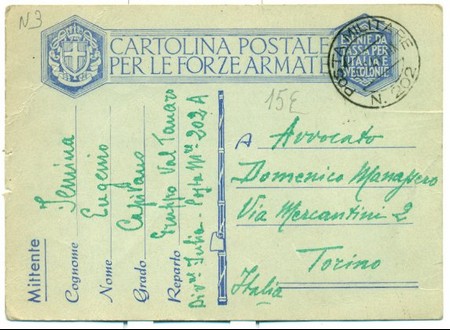 N3
CARTOLINA POSTALE
PER LE FORZE ARMATE
ESENTE DA
TASSA PER
ITALIA E
VE COLONIE
POSTA MILITARE
N. 202
15E
A Avvocato
Domenico Manassero
Via Mercantini 2
Torino
Italia
Mittente
Cognome
Nome Eugenio
Grado Capitano
Reparto Gruppo Val Tanaro
Div.ne Julia - Posta M.re 202 A